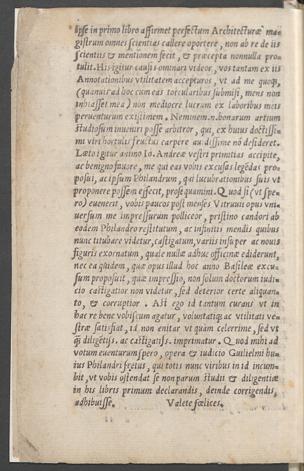 ipse in primo libro affirmet perfectum Architecturæ ma=
gistrum omnes scientias callere oportere, non ab re de iis
scientiis & mentionem fecit, & præcepta nonnulla pro=
tulit. His igitur causis ominari videor, vos tantam ex iis
Annotationibus vtilitatem accepturos, vt ad me quoque,
(quanuis ad hoc cum eas torcularibus submisi, mens non
inhiasset mea) non mediocre lucrum ex laboribus meis
peruenturum existimem. Neminem.n.bonarum artium
studiosum inueniri posse arbitror, qui, ex huius doctissi=
mi viri hortulis fructus carpere audissime nō desideret.
Læto igitur animo Io. Andreæ vestri primitias accipite,
ac benigno fauore, me qui eas vobis excusas legēdas pro=
posui, ac ipsum Philandrum, qui lucubrationibus suis vt
proponere possem effecit, prosequamini. Quod si (vt spe=
ro) euenerit, vobis paucos post menses Vitruuii opus vni=
uersum me impressurum polliceor, pristino candori ab
eodem Philandro restitutum, ac infinitis mendis quibus
nunc titubare videtur, castigatum, variis insuper ac nouis
figuris exornatum, quale nulla adhuc officinæ ediderunt,
nec ea quidem, quæ opus illud hoc anno Basileæ excu=
sum proposuit, quæ impressio, non solum doctorum iudi=
cio castigatior non videtur, sed deterior certe aliquan=
to, & corruptior. Ast ego id tantum curans vt in
hac re bene vobiscum agatur, voluntatiq; ac vtilitati ve=
stræ satisfiat, id non enitar vt quàm celerrime, sed vt
q̃ diligētiss. ac castigatiss. imprimatur. Quod mihi ad
votum euenturum spero, opera & iudicio Gulielmi hu=
ius Philandri fretus, qui totis nunc viribus in id incum=
bit, vt vobis ostendat se non parum studii & diligentiæ
in his libris primum declarandis, deinde corrigendis,
adhibuisse. Valete fœlices.